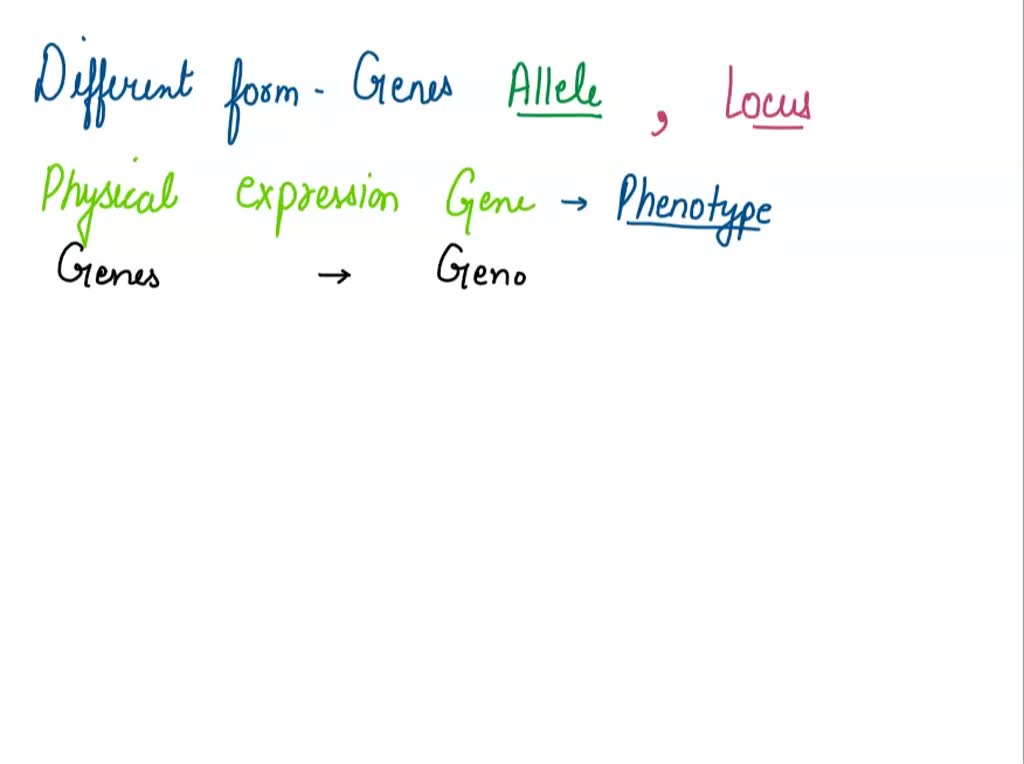 Different form - Genes Allele , Locus
Physical expression Gene → Phenotype
Genes → Geno